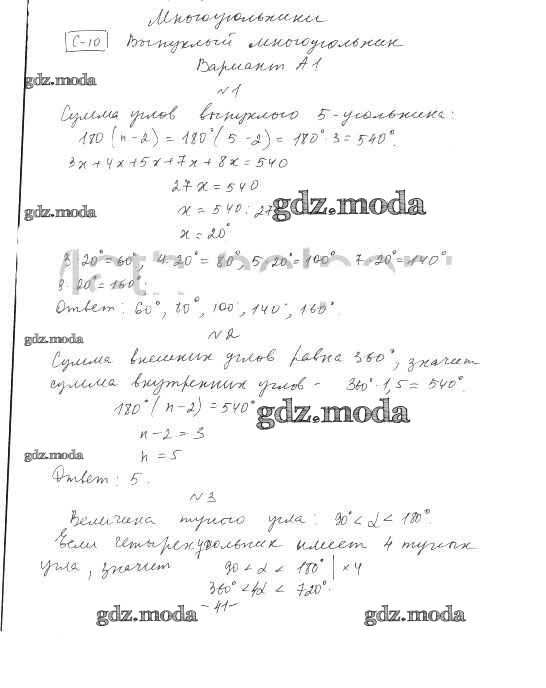 Многоугольники
С-10 Выпуклый многоугольник
Вариант А1
gdz.moda
№1
Сумма углов выпуклого 5-угольника:
180(n-2) = 180°(5-2) = 180°·3 = 540°.
3x+4x+5x+7x+8x=540
27x=540
gdz.moda x=540:27 gdz.moda
x=20°
3·20°=60°, 4·20°=80°, 5·20°=100° 7·20°=140°
8·20°=160°.
Ответ: 60°, 80°, 100°, 140°, 160°.
gdz.moda №2
Сумма внешних углов равна 360°, значит
сумма внутренних углов - 360°·1,5=540°.
180°(n-2)=540° gdz.moda
n-2=3
gdz.moda n=5
Ответ: 5.
№3
Величина тупого угла: 90°<α<180°.
Если четырехугольник имеет 4 тупых
угла, значит 90<α<180° | ×4
360°<4α<720°.
-41-
gdz.moda gdz.moda